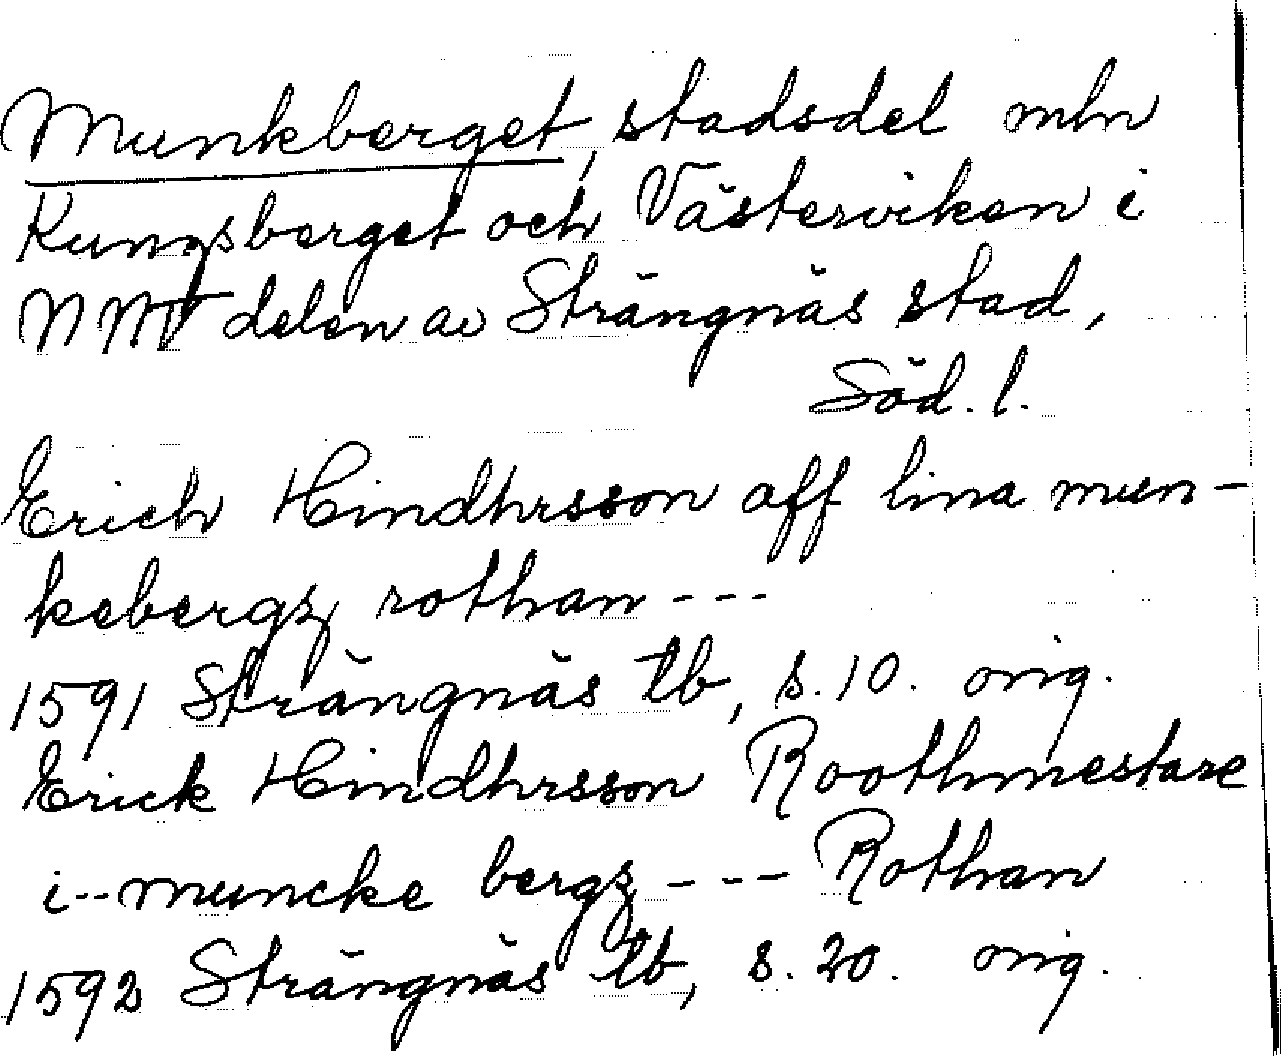 Munkberget, stadsdel mln
Kungsberget och Västerviken i
NNV delen av Strängnäs stad,
Söd. l.
Erich Hindhrsson aff lina mun-
kebergz rothan ---
1591 Strängnäs tb, s. 10. orig.
Erick Hindhrsson Roothmestare
i--muncke bergz --- Rothan
1592 Strängnäs tb, s. 20. orig.